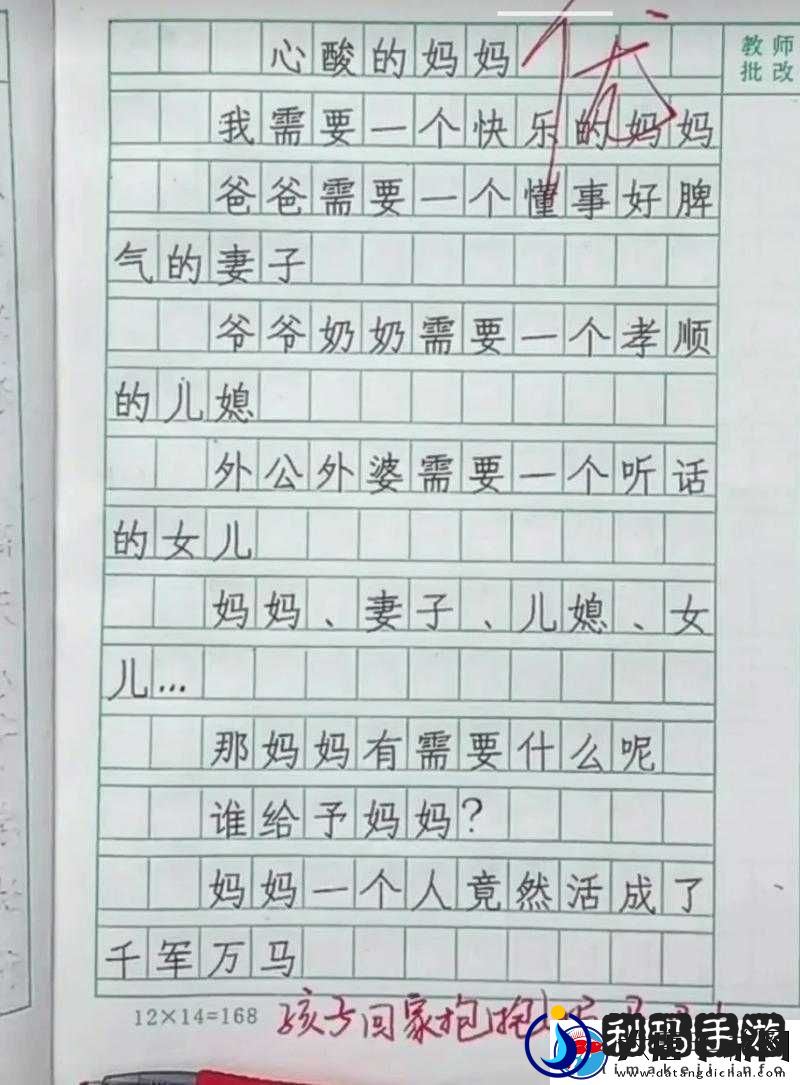 心酸的妈妈
优
教师
批改
我需要一个快乐的妈妈
爸爸需要一个懂事好脾
气的妻子
爷爷奶奶需要一个孝顺
的儿媳
外公外婆需要一个听话
的女儿
妈妈、妻子、儿媳、女
儿...
那妈妈有需要什么呢
谁给予妈妈?
妈妈一个人竟然活成了
千军万马
12×14=168
孩子回家抱抱
利玛手游
limakeji.nfo
www.datangdichan.com